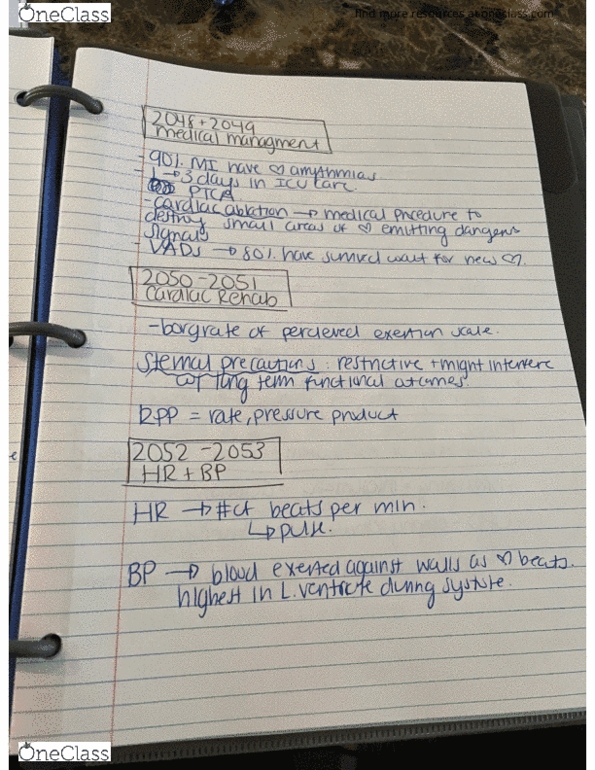 OneClass
find more resources at oneclass.com
2048+2049
medical managment
- 90%. MI have ♡ arrythmias
1→3 days in ICU care
PTCA
- cardiac ablation → medical procedure to
destroy small areas of ♡ emitting dangerous
signals
- VADs → 80%. have survived wait for new ♡.
2050-2051
Cardiac Rehab
- borg rate of percieved exertion scale.
sternal precautions: restrictive + might interfere
w/ long term functional outcomes
RPP = rate, pressure product
2052-2053
HR + BP
HR → # of beats per min.
↳ pulse.
BP → blood exerted against walls as ♡ beats.
highest in L. ventricle during systole.
OneClass